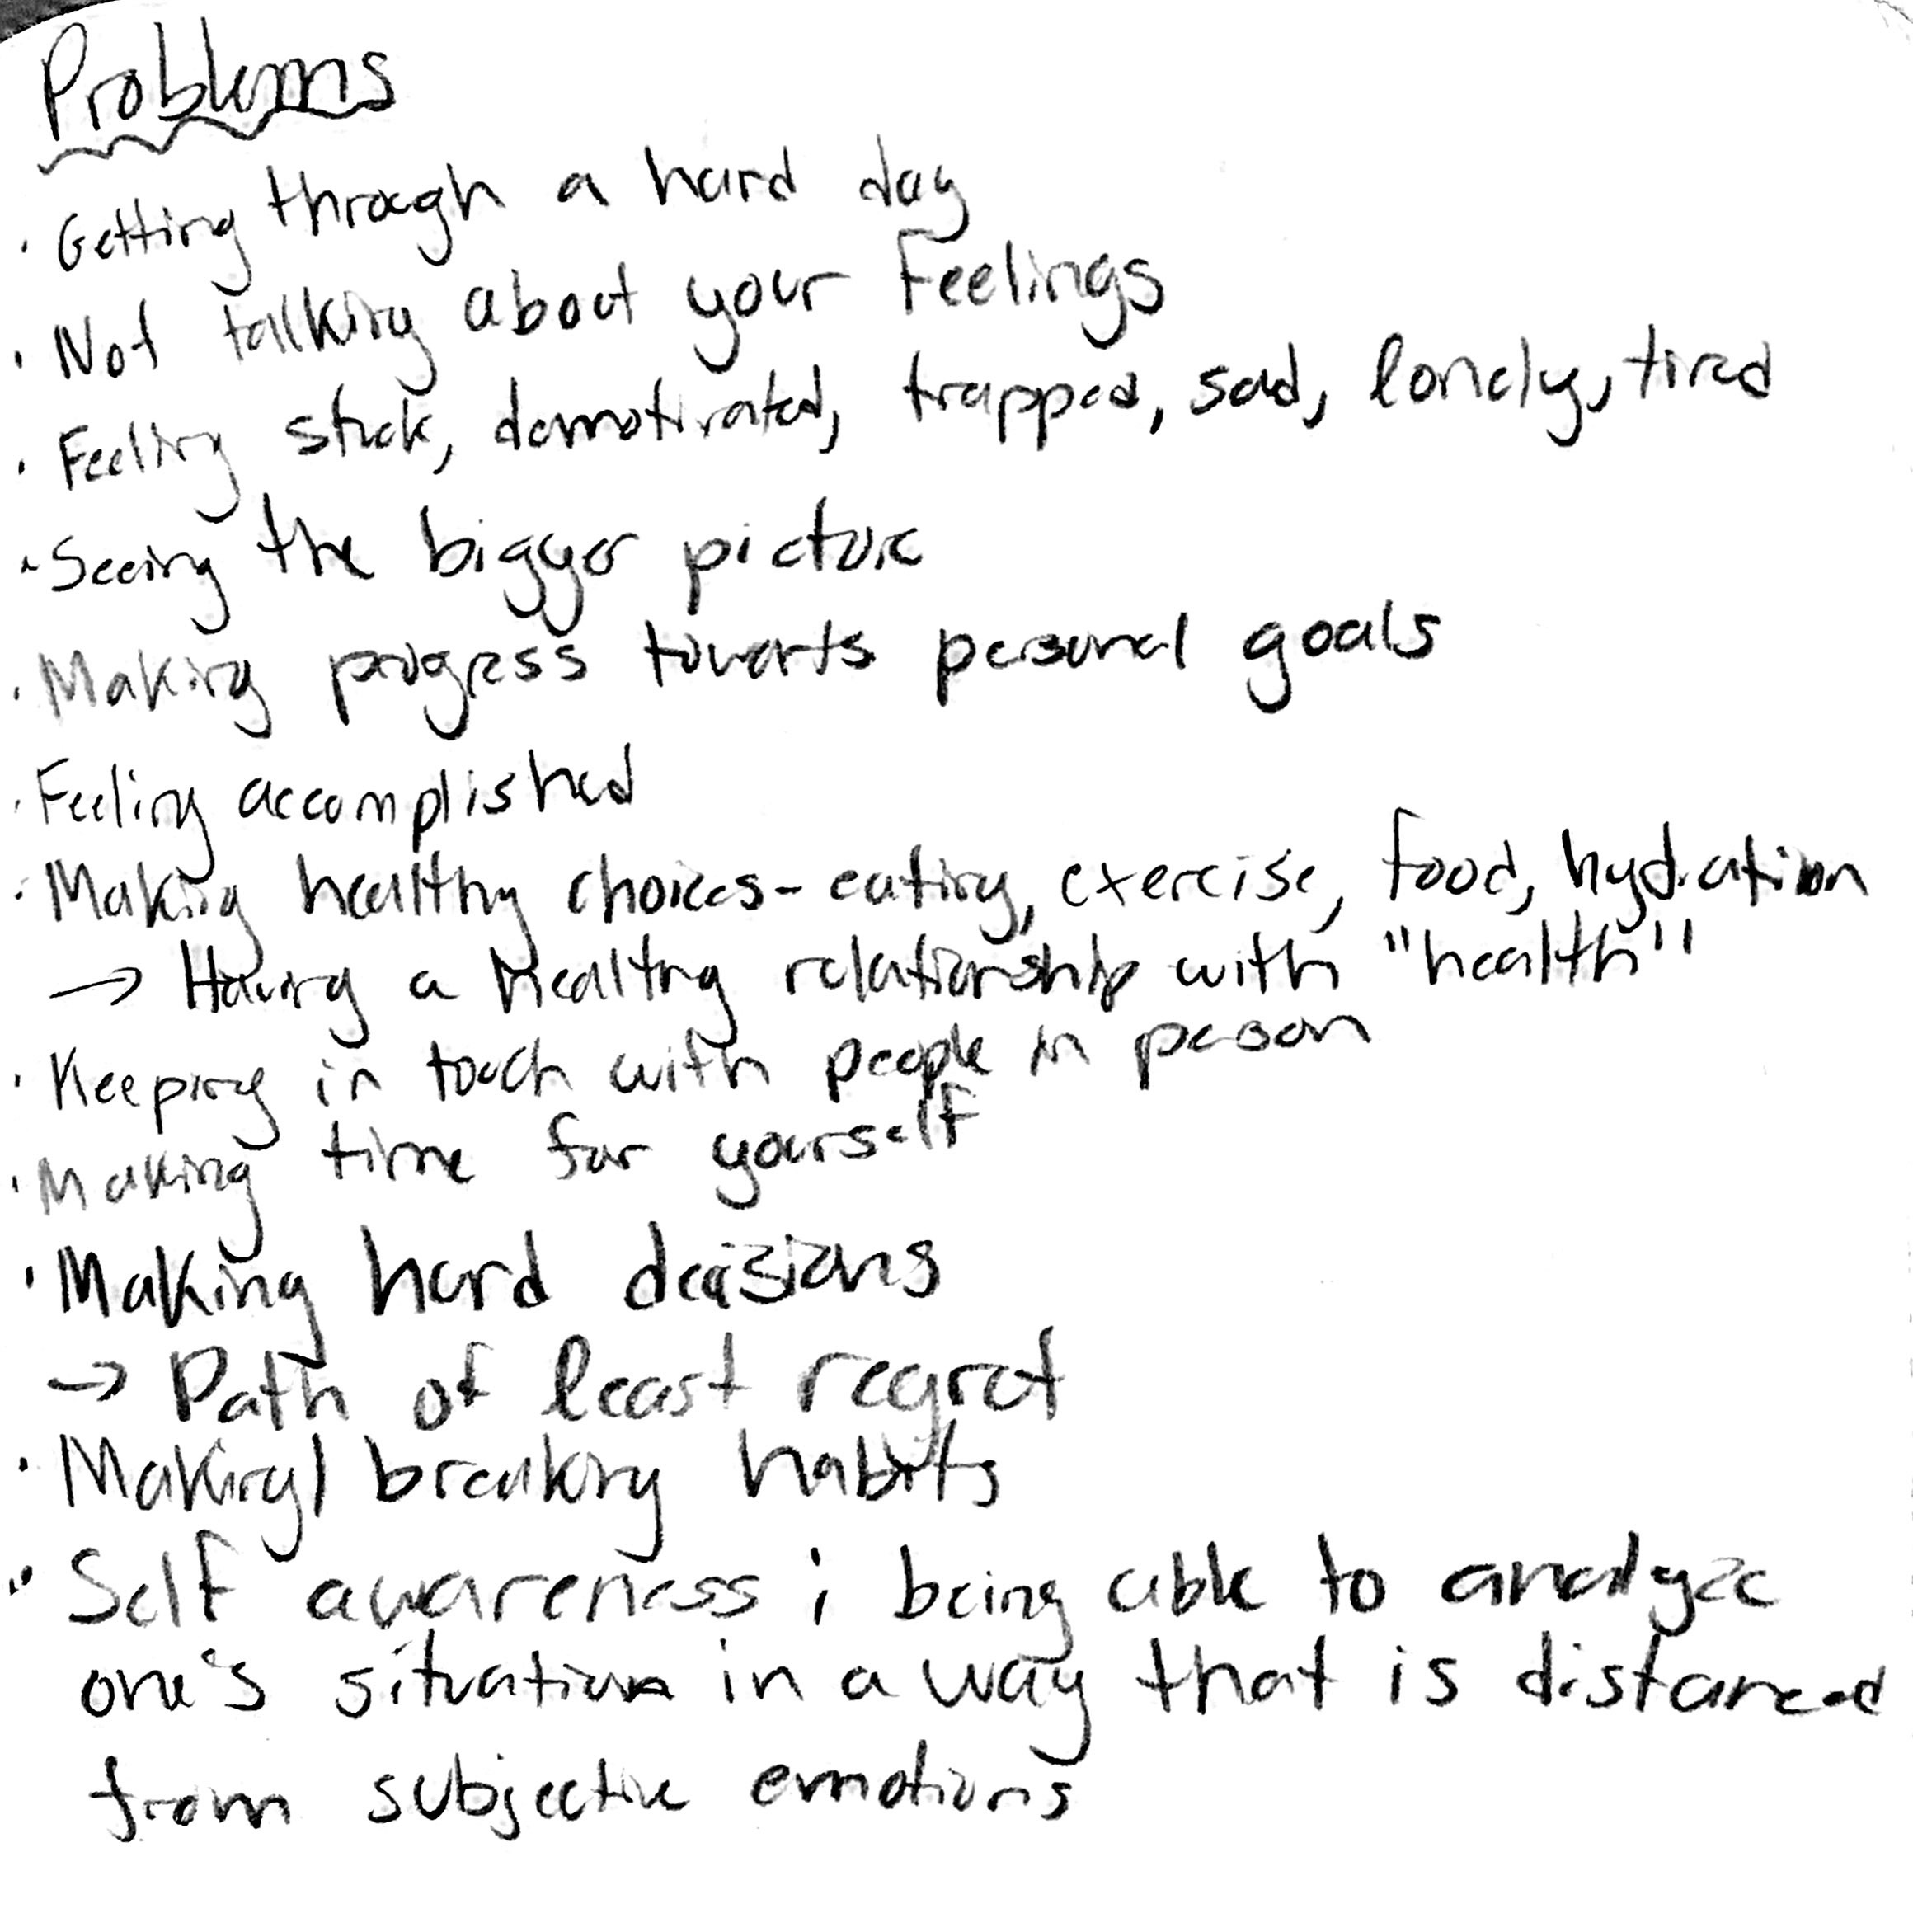 Problems
· Getting through a hard day
· Not talking about your feelings
· Feeling stuck, demotivated, trapped, sad, lonely, tired
· Seeing the bigger picture
· Making progress towards personal goals
· Feeling accomplished
· Making healthy choices - eating, exercise, food, hydration
→ Having a healthy relationship with "health"
· Keeping in touch with people in person
· Making time for yourself
· Making hard decisions
→ Path of least regret
· Making/breaking habits
· Self awareness; being able to analyze
one's situation in a way that is distanced
from subjective emotions